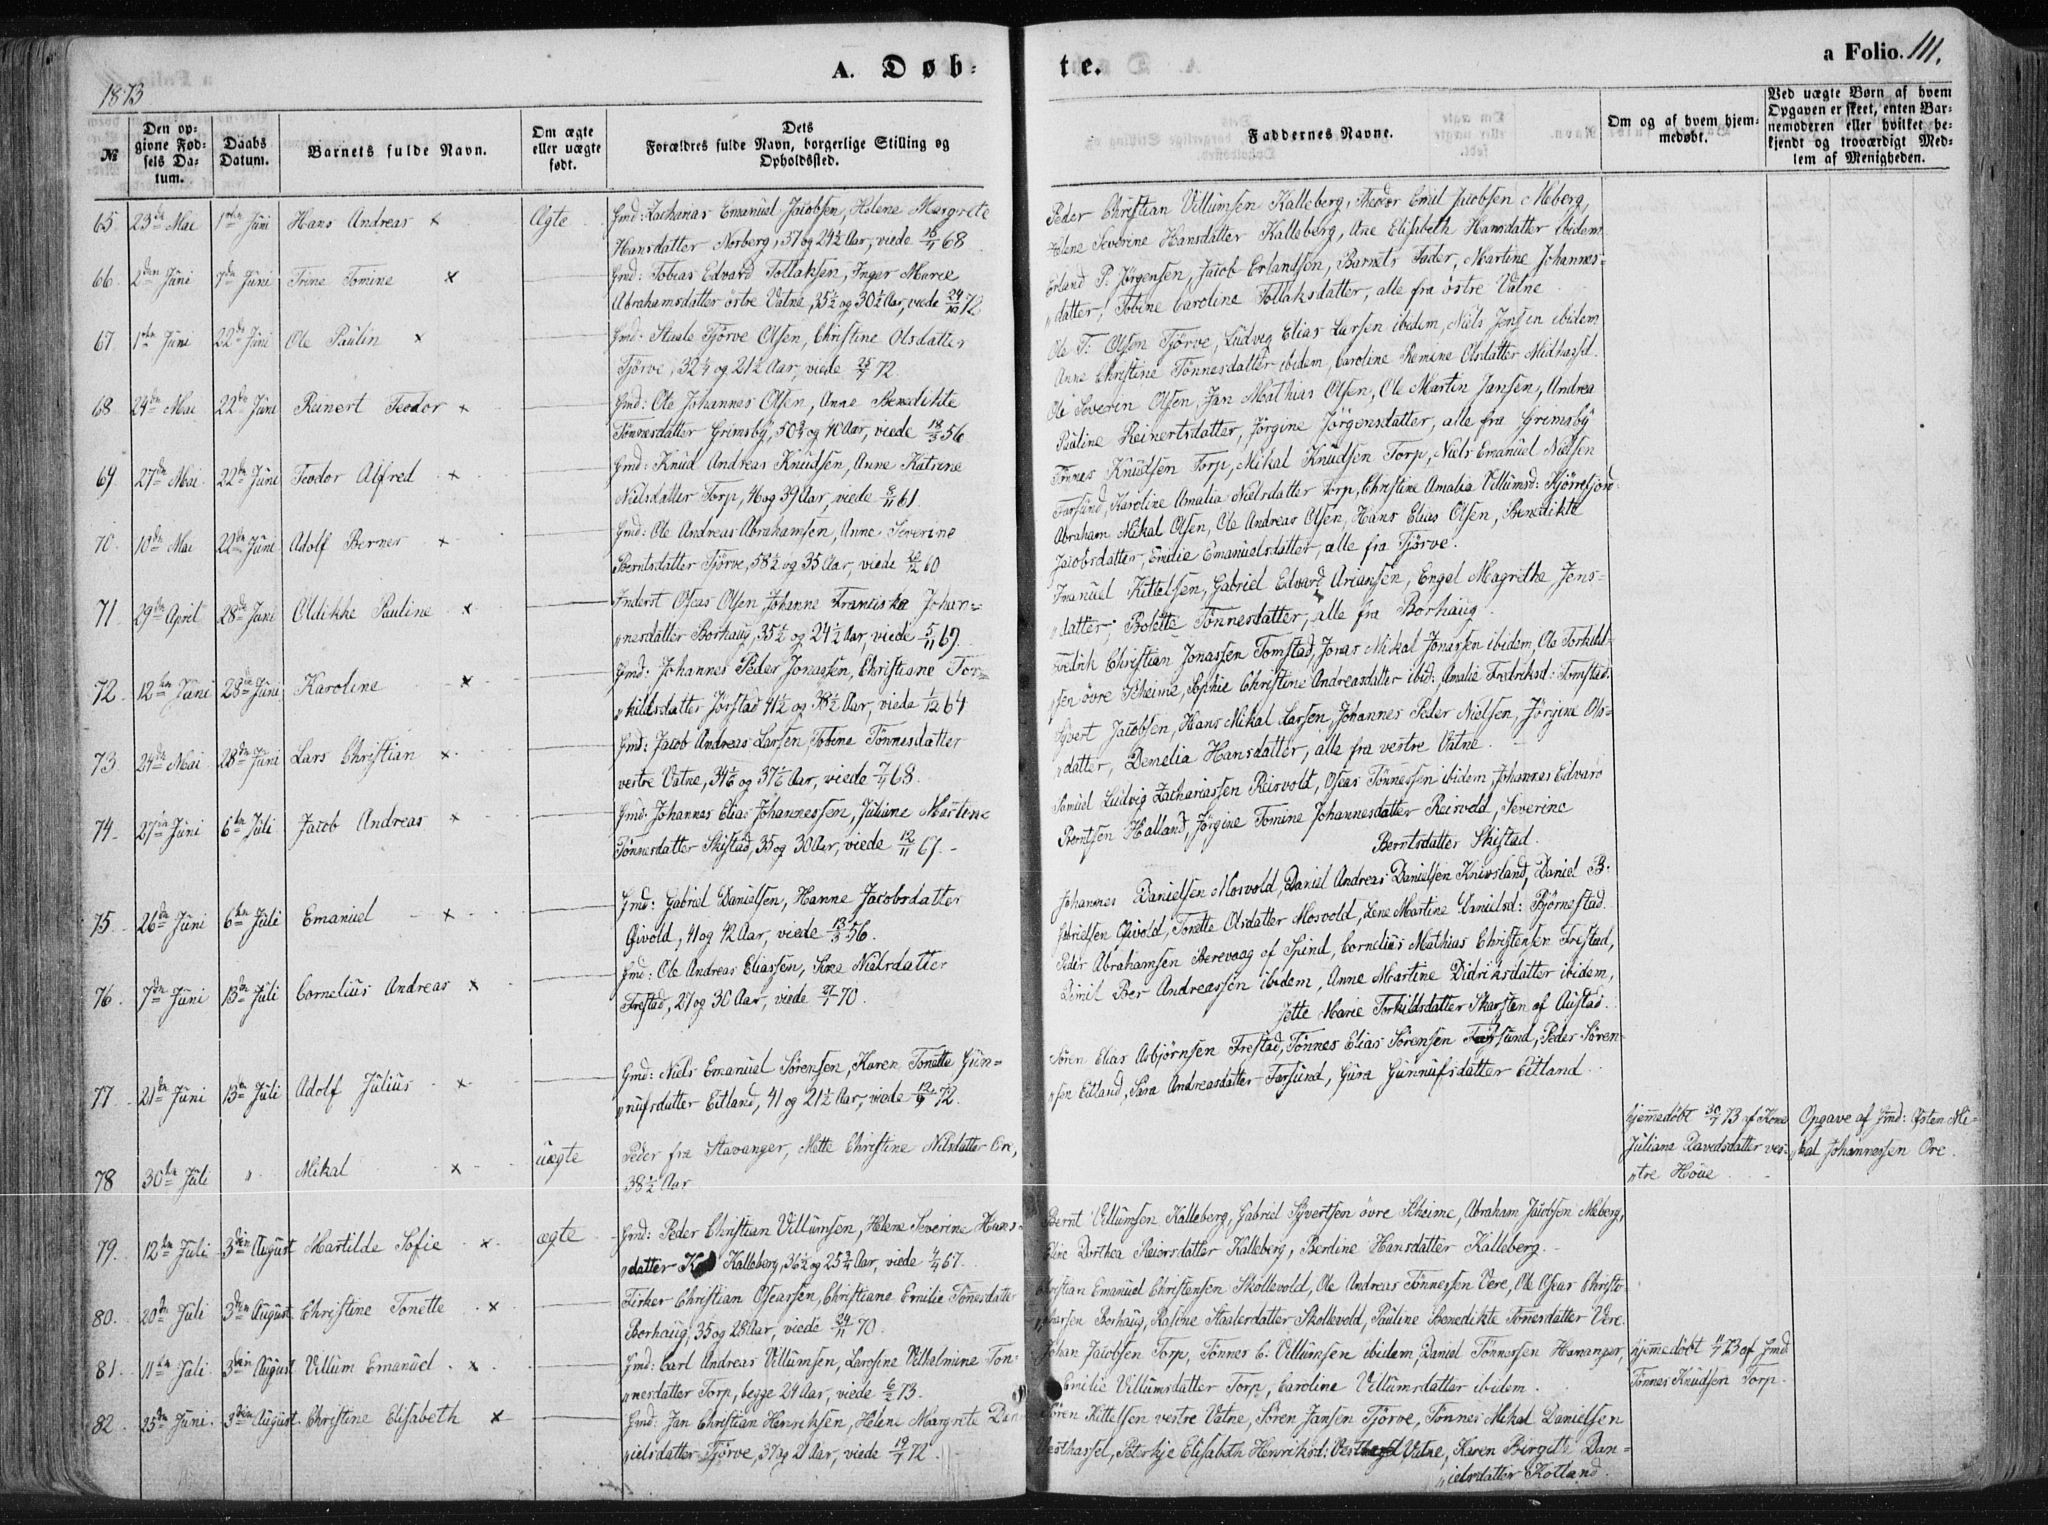 A. Døb-te.
a Folio. 111.
1873
№
Den opgivne Fødsels Datum.
Daabs Datum.
Barnets fulde Navn.
Om ægte eller uægte født.
Dets Forældres fulde Navn, borgerlige Stilling og Opholdssted.
Faddernes Navne.
Om og af hvem hjemmedøbt.
Ved uægte Børn af hvem Opgaven er skeet, enten Barnemoderen eller hvilket bekjendt og troværdigt Medlem af Menigheden.
65 23de Mai 1ste Juni Hans Andreas x Ægte Gmd: Zacharias Emanuel Jacobsen, Helene Margrete
Hansdatter Norberg, 37 og 24½ Aar, viede 68
Peder Christian Villumsen Kalleberg, Theodor Emil Jacobsen Meberg,
Helene Severine Hansdatter Kalleberg, Ane Elisabeth Hansdatter ibidem
66 2den Juni 7de Juni Trine Tomine x Gmd: Tobias Edvard Tollaksen, Inger Marie
Abrahamsdatter østre Vatne, 35½ og 30½ Aar, viede 24/10 72
Erland P. Jörgensen, Jacob Erlandsen, Barnets Fader, Martine Johannes-
datter, Tobine Caroline Tollaksdatter, alle fra østre Vatne
67 1ste Juni 22de Juni Ole Paulin x Gmd: Staale Tjörve Olsen, Christine Olsdatter
Tjörve, 32¼ og 21½ Aar, viede 72.
Ole T. Olsen Tjörve, Ludvig Elias Larsen ibidem, Niels Jensen ibidem
Anne Christine Tönnesdatter ibidem, Caroline Remine Olsdatter Midhassel.
68 24de Mai 22de Juni Reinert Teodor x Gmd: Ole Johannes Olsen, Anne Benedikte
Tönnesdatter Grimsby, 50¾ og 40 Aar, viede 18/3 56
Ole Severin Olsen, Jan Mathias Olsen, Ole Martin Jansen, Andrea
Pauline Reinertsdatter, Jörgine Jörgensdatter, alle fra Grimsby
69 27de Mai 22de Juni Teodor Alfred x Gmd: Knud Andreas Knudsen, Anne Katrine
Nielsdatter Torp, 46 og 39 Aar, viede 61
Tönnes Knudsen Torp, Mikal Knudsen Torp, Niels Emanuel Nielsen
Farsund, Karoline Amalia Nielsdatter Torp, Christine Amalia Villumsd: Kjörrefjord
70. 10de Mai 22de Juni Adolf Berner x Gmd: Ole Andreas Abrahamsen, Anne Severine
Berntsdatter Tjörve, 58½ og 35 Aar, viede 60
Abraham Mikal Olsen, Ole Andreas Olsen, Hans Elias Olsen, Benedikte
Jacobsdatter, Emilie Emanuelsdatter, alle fra Tjörve.
71 29de April 28de Juni Oldikke Pauline x Inderst Oseas Olsen Johanne Franciska Johan-
nesdatter Borhaug, 35½ og 24½ Aar, viede 5/11 69.
Imanuel Kittelsen, Gabriel Edvard Ariansen, Engel Magrethe Jens-
datter, Bolette Tönnesdatter, alle fra Borhaug.
72. 12te Juni 28de Juni Karoline x Gmd: Johannes Peder Jonassen, Christiane Tor-
kildsdatter Jörstad 41½ og 38½ Aar, viede 1/12 64
Fredrik Christian Jonassen Tomstad, Jonas Mikal Jonassen ibidem, Ole Torkild-
sen övre Skeime, Sophie Christine Andreasdatter ibid: Amalie Fredriksd: Tomstad.
73 24de Mai 28de Juni Lars Christian x Gmd: Jacob Andreas Larsen Tobine Tönnesdatter
vestre Vatne, 34 og 37 Aar, viede 68.
Syvert Jacobsen, Hans Mikal Larsen, Johannes Peder Nielsen, Jörgine Ols-
datter, Demelia Hansdatter, alle fra vestre Vatne.
74 27de Juni 6te Juli Jacob Andreas x Gmd: Johannes Elias Johannessen, Juliane Martene
Tönnesdatter Skistad, 35 og 30 Aar, viede 12/11 67.
Samuel Ludvig Zachariassen Reisvold, Oseas Tönnessen ibidem Johannes Edvard
Berntsen Halland, Jörgine Tomine Johannesdatter Reisvold, Severine
Berntsdatter Skistad.
75. 26de Juni 6te Juli Emanuel x Gmd: Gabriel Danielsen, Hanne Jacobsdatter
Qvivold, 41 og 42 Aar, viede 13/3 56.
Johannes Danielsen Mosvold, Daniel Andreas Danielsen Knivsland, Daniel B.
Gabrielsen Qvivold, Tonette Olsdatter Mosvold, Lene Martine Danielsd: Björnestad.
76. 7de Juni 13de Juli Cornelius Andreas x Gmd: Ole Andreas Eliassen, Sine Nielsdatter
Frestad, 27 og 30 Aar, viede 70.
Peder Abrahamsen Berevaag of Spind, Cornelius Mathias Christensen Frestad,
Ber Andreassen ibidem, Anne Martine Didriksdatter ibidem,
Jette Marie Torkildsdatter Skarsten af Austad.
77. 21de Juni 13de Juli Adolf Julius x Gmd: Niels Emanuel Sörensen, Karen Tonette Gun-
nufsdatter Eitland, 41 og 21½ Aar, viede 12/9 72.
Sören Elias Asbjörnsen Frestad, Tönnes Elias Sörensen Farsund, Peder Sören-
sen Eitland, Sara Andreasdatter Farsund, Gura Gunnufsdatter Eitland.
78 30te Juli " Mikal x uægte Peder fra Stavanger, Mette Christine Nilsdatter Ore,
38½ Aar
hjemmedøbt 30/7 73 af Kone
Juliane Davedsdatter ves-
tre Höue
Opgave af Gmd: Østen Mi-
kal Johannessen Ore.
79. 12te Juli 3die August Martilde Sofie x ægte Gmd: Peder Christian Villumsen, Helene Severine Hans-
datter Kalleberg, 36½ og 25¾ Aar, viede 67.
Bernt Villumsen Kalleberg, Gabriel Syvertsen övre Skeime, Abraham Jacobsen Meberg,
Eline Dorthea Reiersdatter Kalleberg, Berdine Hansdatter Kalleberg.
80. 20de Juli 3die August Christine Tonette x Firker Christian Oseassen, Christiane Emilie Tönesdatter
Borhaug, 35 og 28 Aar, viede 24/11 70.
Christian Emanuel Christensen Skollevold, Ole Andreas Tönnessen Vere, Ole Oseas Christo-
fersen Borhaug, Raline Staalesdatter Skollevold, Pauline Benedikte Tönesdatter Vere.
81. 11te Juli 3die August Villum Emanuel x Gmd: Carl Andreas Villumsen, Larosine Vilhelmine Tön-
nesdatter Torp, begge 24 Aar, viede 6/2 73.
Johan Jacobsen Torp, Tönner C. Villumsen ibidem, Daniel Tönnessen Hananger,
Emilie Villumsdatter Torp, Caroline Villumsdatter ibidem.
hjemmedøbt 73 af Gmd:
Tönnes Knudsen Torp.
82. 25de Juni 3die August Christine Elisabeth x Gmd: Jan Christian Henriksen, Helene Margrete Dan-
nielsdatter Tjörve, 37 og 21 Aar, viede 19/7 72.
Sören Kittelsen vestre Vatne, Sören Jansen Tjörve, Tönnes Mikal Danielsen
Vesthassel, Peterkje Elisabeth Henriksd: Vatne, Karen Birgitte Dan-
ielsdatter Kolland.